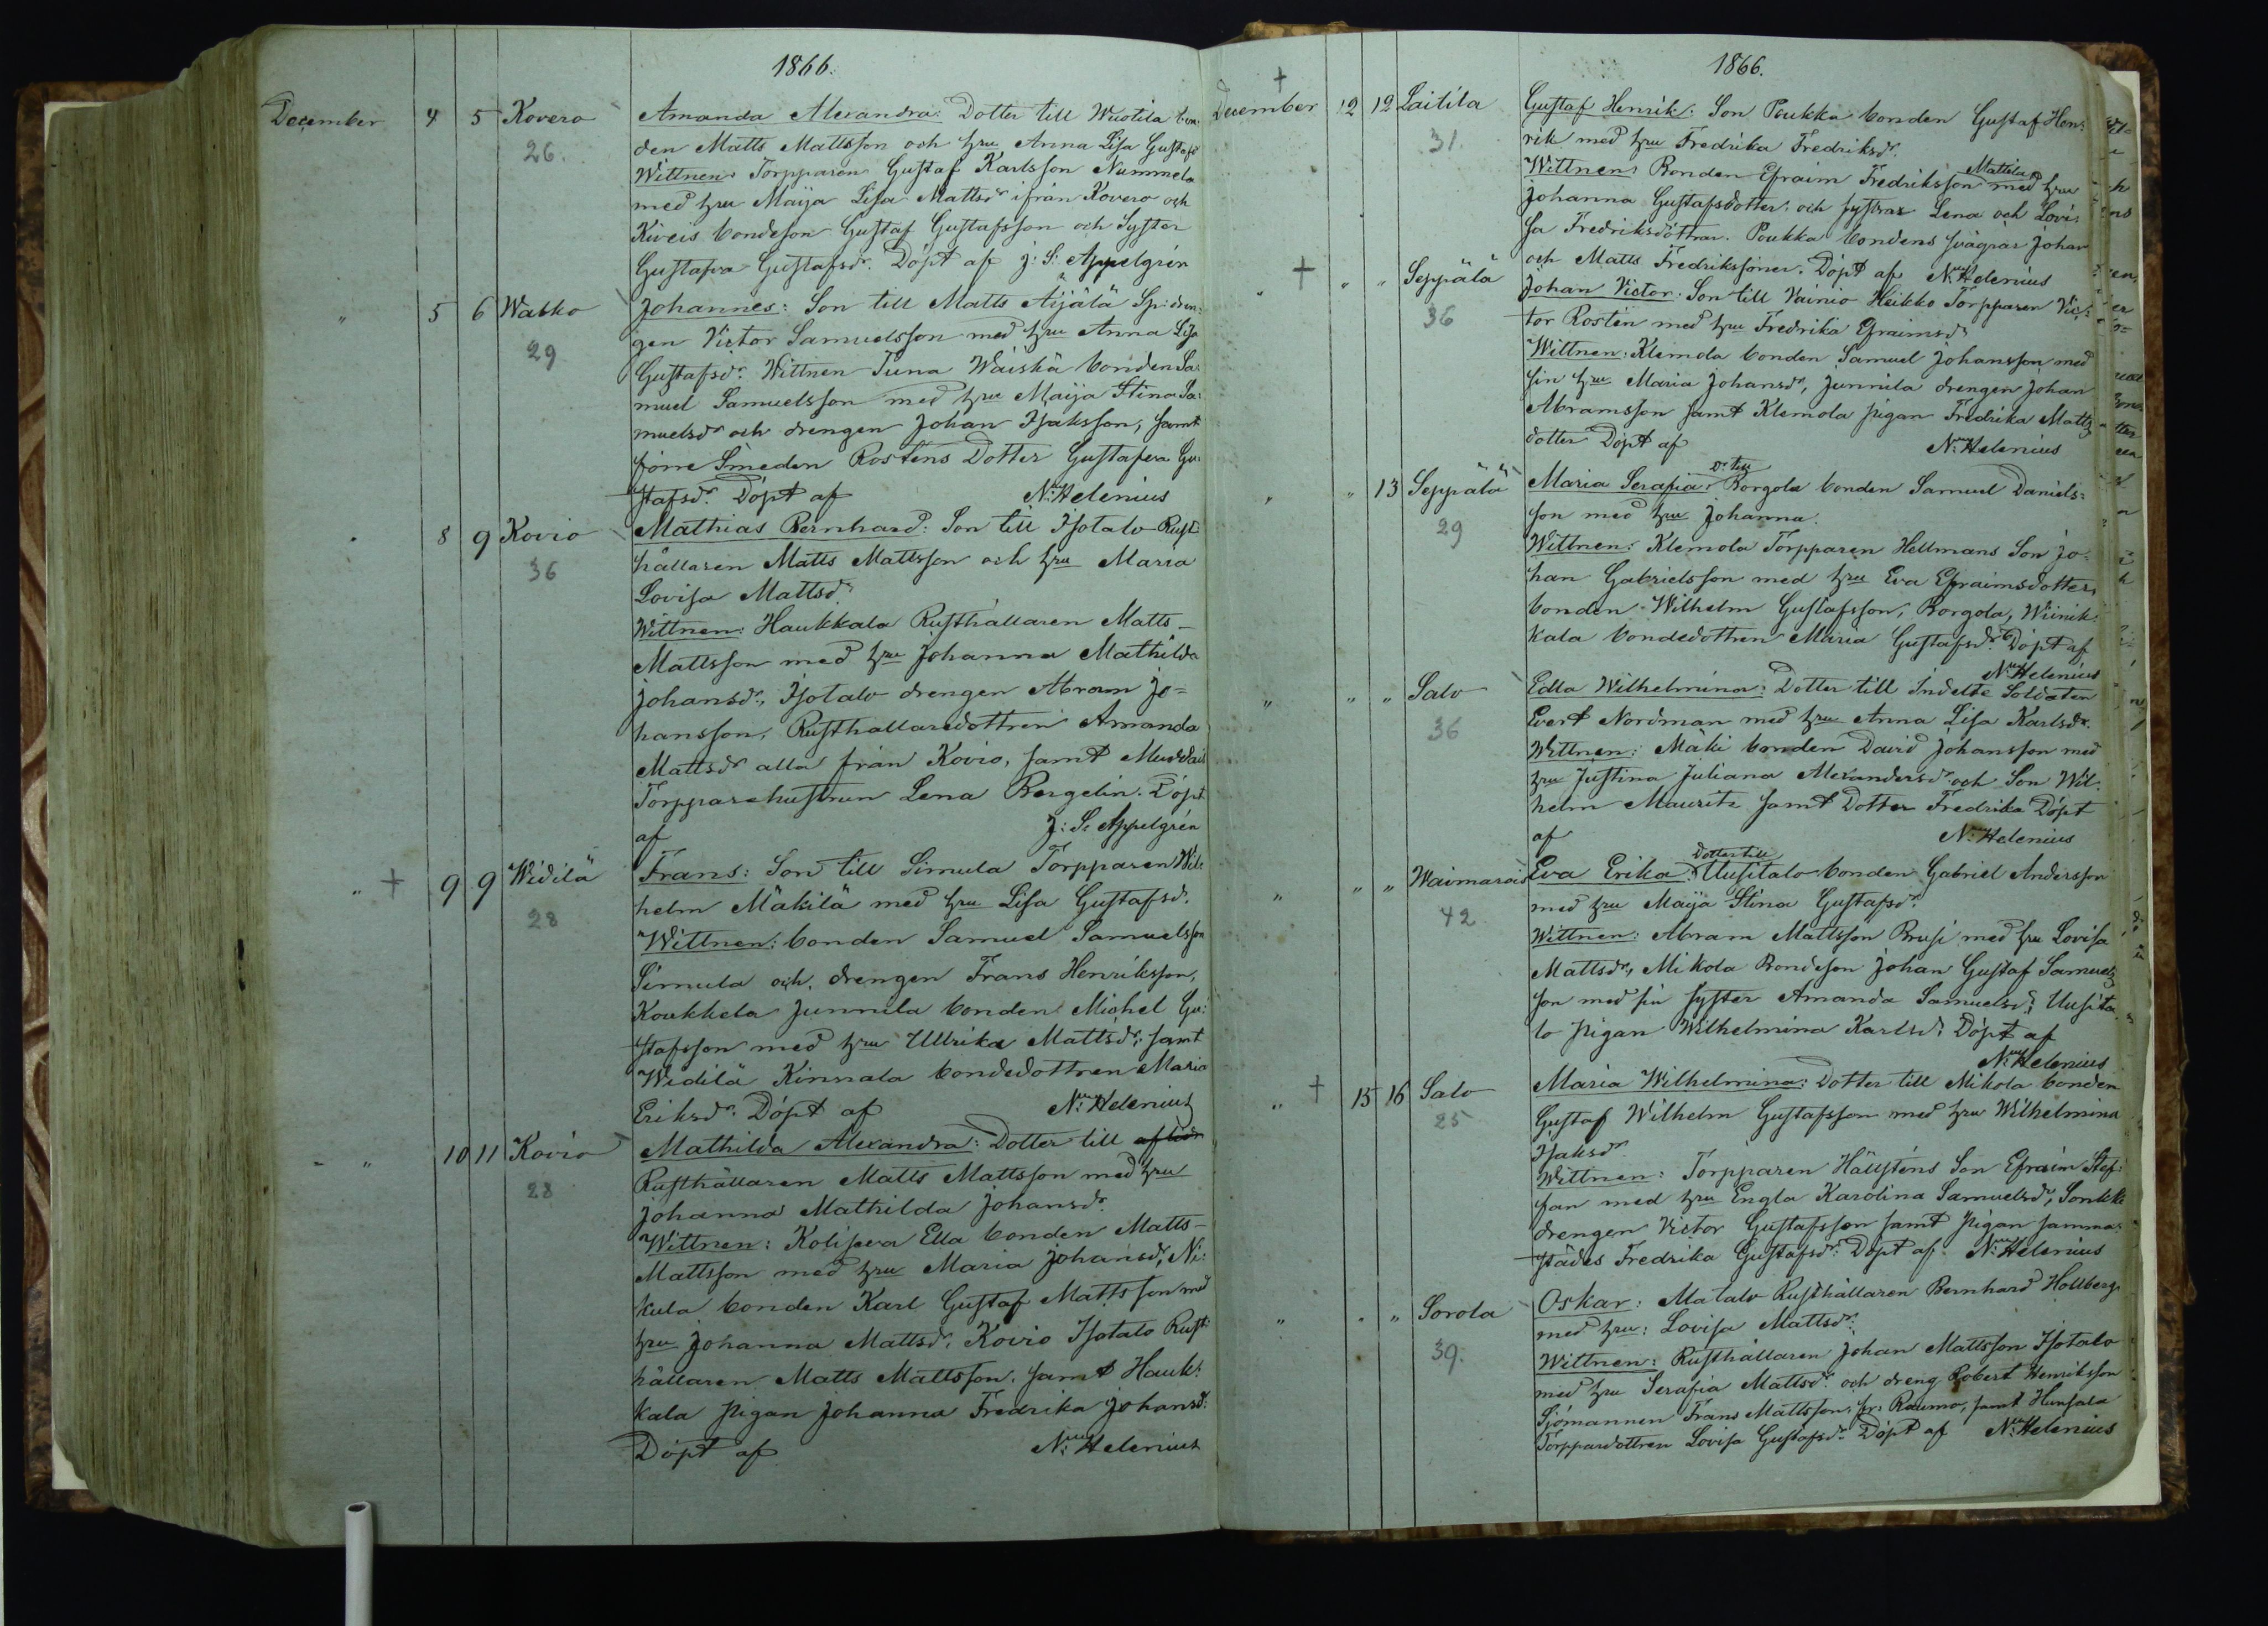 1866.
December 4 5 Kovero Amanda Alexandra: Dotter till Wuotila bon-
26. den Matts Mattsson och hru Anna Lisa Gustafsd
Wittnen: Torpparen Gustaf Karlsson Nummela
med hru Maija Lisa Mattsdr ifrån Kovero och
Kiveis bondeson Gustaf Gustafsson och Syster
Gustafva Gustafsdr. Döpt af J: S: Appelgrén
" 5 6 Wasko Johannes: Son till Matts Äijälä Sp: dren-
29 gen Victor Samuelsson med hru Anna Lisa
Gustafsdr. Wittnen Tuna Wäiskä bonden Sa-
muel Samuelsson med hru Maija Stina Sa-
muelsdr och drengen Johan Isaksson, samt
förre Smeden Rosténs Dotter Gustafva Gu-
stafsdr. Döpt af N: Helenius
" 8 9 Kovio Mathias Bernhard: Son till Isotalo Rust-
36 hållaren Matts Mattsson och hru Maria
Lovisa Mattsdr
Wittnen: Haukkala Rusthållaren Matts
Mattsson med hru Johanna Mathilda
Johansdr, Isotalo drengen Abram Jo-
hansson, Rusthållaredottren Amanda
Mattsdr alla från Kovio, samt Muddais
Torpparehustrun Lena Bergelin. Döpt
af J: S. Appelgrén
" + 9 9 Widilä Frans: Son till Simula Torpparen Wil-
28 helm Mäkilä med hru Lisa Gustafsd.
Wittnen: bonden Samuel Samuelsson
Simula och drengen Frans Henriksson,
Koukkela Junnila bonden Michel Gu-
stafsson med hru Ullrika Mattsdr; samt
Widilä Kinnala bondedottren Maria
Eriksdr. Döpt af N: Helenius
" 10 11 Kovio Mathilda Alexandra: Dotter till aflidn
28 Rusthållaren Matts Mattsson med hru
Johanna Mathilda Johansdr.
Wittnen: Koliseva Ella bonden Matts
Mattsson med hru Maria Johansdr, Ni-
kula bonden Karl Gustaf Mattsson med
hru Johanna Mattsdr. Kovio Isotalo Rust-
hållaren Matts Mattsson. samt Hauk-
kala pigan Johanna Fredrika Johansd:
Döpt af N: Helenius
1866.
+
December 12 12 Laitila Gustaf Henrik: Son Poukka bonden Gustaf Hen-
31. rik med hru Fredrika Fredriksdr.
Wittnen: Bonden Efraim Fredriksson Mattila med hru
Johanna Gustafsdotter och systrar Lena och Lovi-
sa Fredriksdöttrar. Poukka bondens svågrar Johan
och Matts Fredrikssöner. Döpt af N: Helenius
" + " " Seppälä Johan Victor: Son till Vainio Heikko Torpparen Vic-
36 tor Rostén med hru Fredrika Efraimsdr
Wittnen: Klemola bonden Samuel Johansson med
sin hru Maria Johansdr, Junnila drengen Johan
Abramsson samt Klemola pigan Fredrika Matts
dotter Döpt af N: Helenius
" " 13 Seppälä Maria Serafia: Dr till Borgola bonden Samuel Daniels-
29 son med hru Johanna.
Wittnen: Klemola Torpparen Hellmans Son Jo-
han Gabrielsson med hru Eva Efraimsdotter,
bonden Wilhelm Gustafsson, Borgola, Wiinik-
kala bondedottren Maria Gustafsdr. Döpt af
N: Helenius
" " " Salo Edla Wilhelmina: Dotter till Indelte Soldaten
36 Evert Nordman med hru Anna Lisa Karlsdr.
Wittnen: Mäki bonden David Johansson med
hru Justina Juliana Alexandersdr och Son Wil-
helm Mauritz samt Dotter Fredrika Döpt
af N: Helenius
" " " Waimarois Eva Erika: Dotter till Uusitalo bonden Gabriel Andersson
42 med hru Maija Stina Gustafsdr.
Wittnen: Abram Mattsson Prusi med hru Lovisa
Mattsdr, Mikola Bondeson Johan Gustaf Samuels
son med sin syster Amanda Samuelsd; Uusita-
lo pigan Wilhelmina Karlsd: Döpt af
N: Helenius
" + 15 16 Salo Maria Wilhelmina: Dotter till Mikola bonden
25 Gustaf Wilhelm Gustafsson med hru Wilhelmina
Isaksdr
Wittnen: Torpparen Hällsténs Son Efraim Stef-
fan med hru Engla Karolina Samuelsdr, Sonkki
drengen Victor Gustafsson samt pigan samma-
städes Fredrika Gustafsdr: Döpt af N: Helenius
" " " Sorola Oskar: Matalo Rusthållaren Bernhard Hollberg
39. med hru: Lovisa Mattsdr.
Wittnen: Rusthållaren Johan Mattsson Isotalo
med hru Serafia Mattsdr. och dreng Robert Henriksson
Sjömannen Frans Mattsson, fr: Raumo, samt Hunsala
Torpparedottren Lovisa Gustafsdr Döpt af N: Helenius